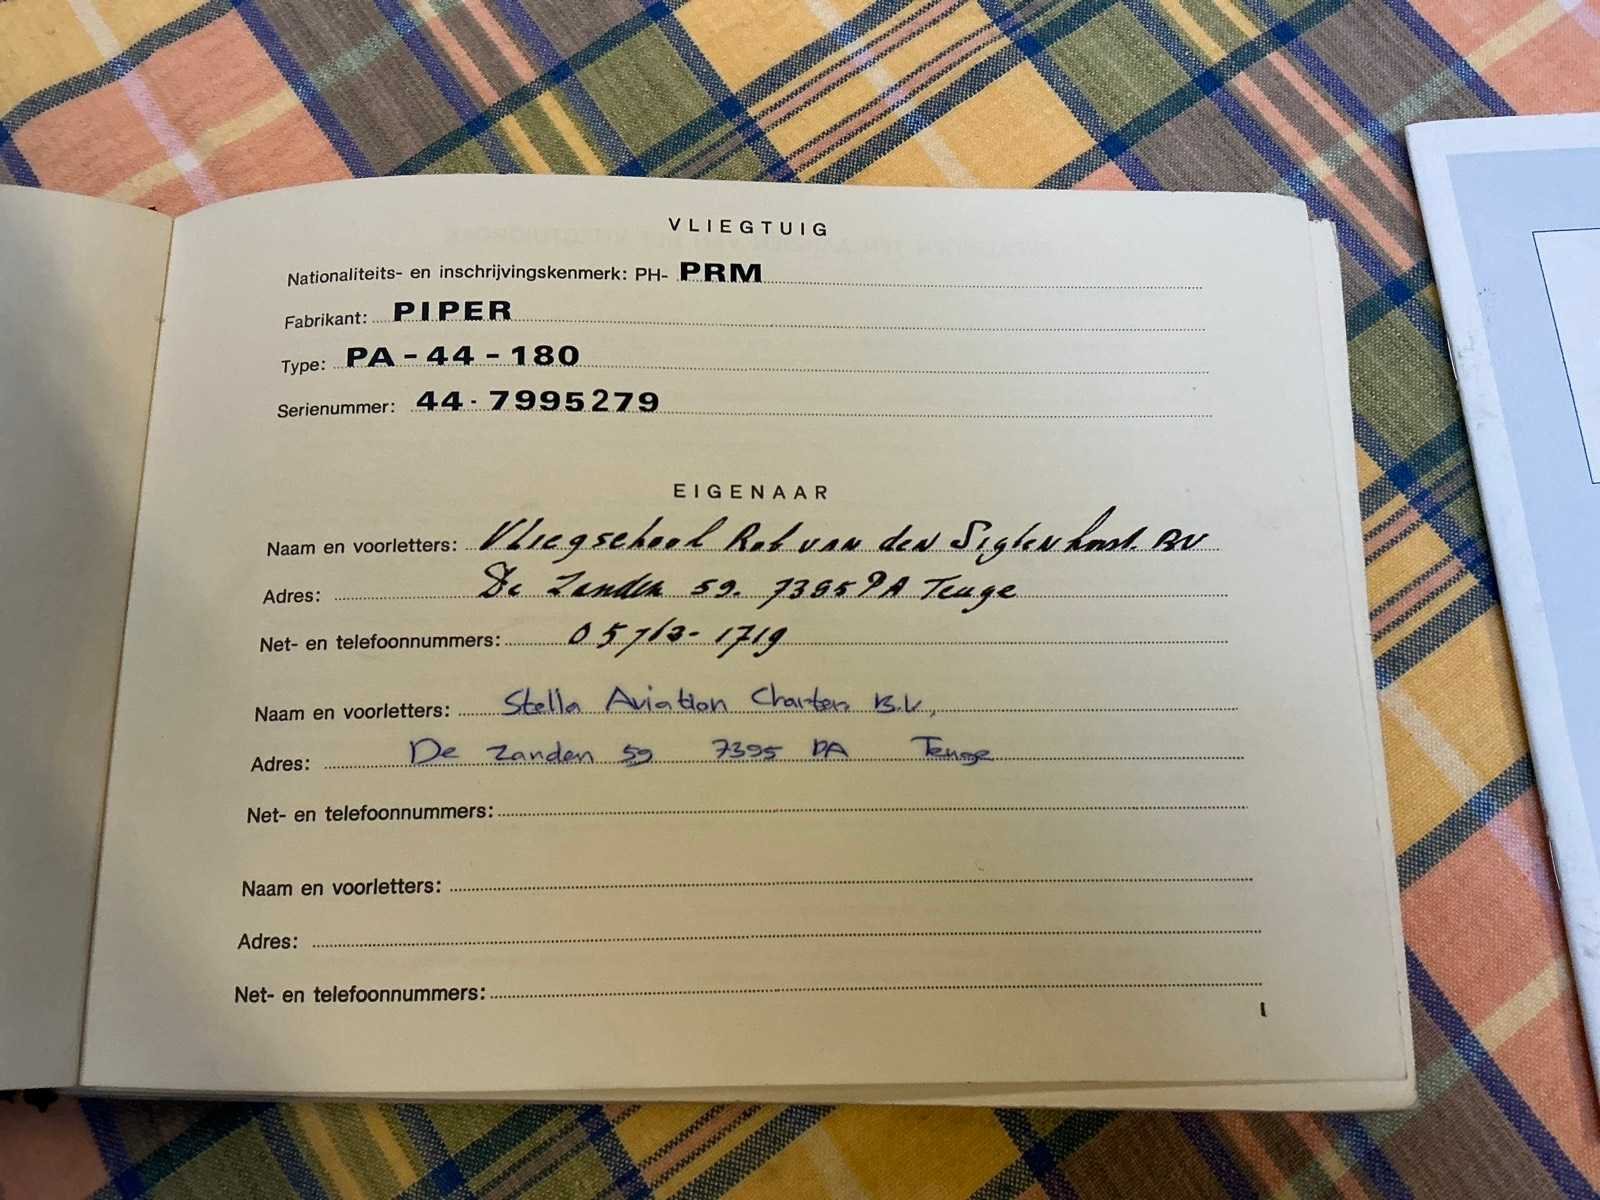 VLIEGTUIG
Nationaliteits- en inschrijvingskenmerk: PH- PRM
Fabrikant: PIPER
Type: PA-44-180
Serienummer: 44-7995279
EIGENAAR
Naam en voorletters: Vliegschool Rob van den Siglenhorst. BV
Adres: De Zanden 59. 7395PA Teuge
Net- en telefoonnummers: 05713-1719
Naam en voorletters: Stella Aviation Charters B.V.
Adres: De Zanden 59 7395 PA Teuge
Net- en telefoonnummers:
Naam en voorletters:
Adres:
Net- en telefoonnummers:
1